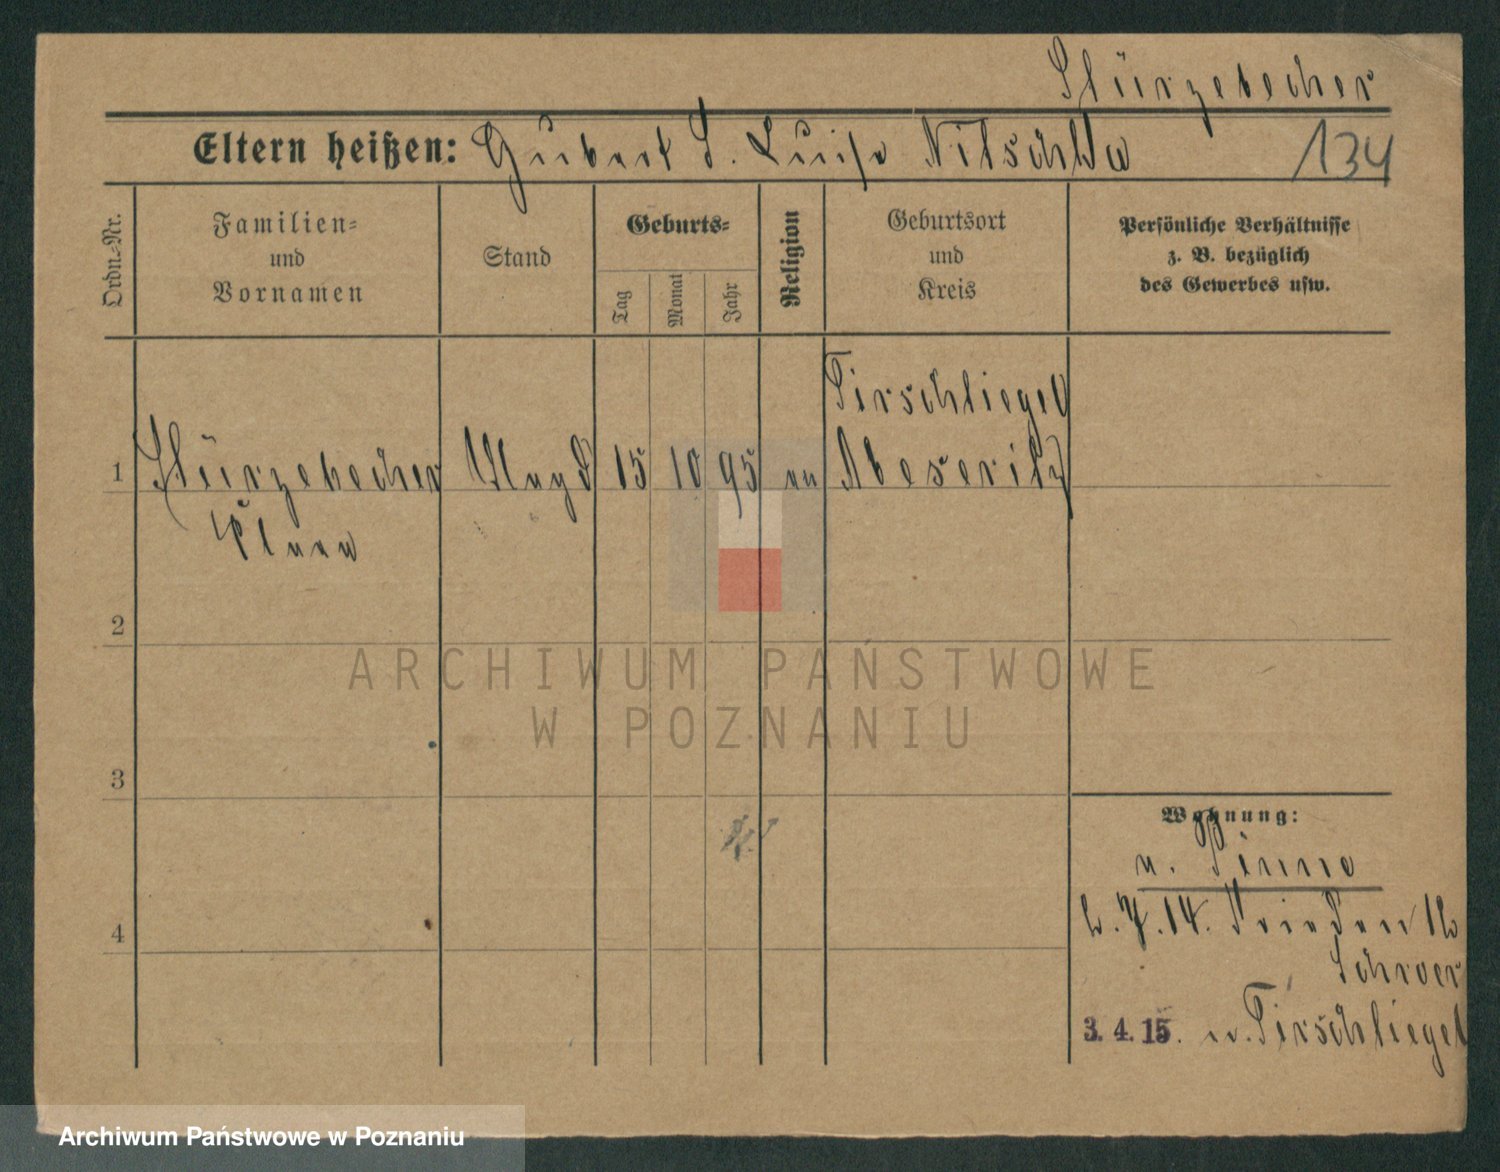 Stürzebecher
Eltern heißen: Hubert S. Luise Nitschke
134
Ordn.-Nr.
Familien=
und
Vornamen
Stand
Geburts=
Tag
Monat
Jahr
Religion
Geburtsort
und
Kreis
Persönliche Verhältnisse
z. B. bezüglich
des Gewerbes usw.
Tirschtiegel
1 Stürzebecher Magd 15 10 95 ev Meseritz
Clara
2
ARCHIWUM PAŃSTWOWE
W POZNANIU
3
Wohnung:
v. Pinne
4
2.7.14. 
Schroer
3.4.15. n. Tirschtiegel
Archiwum Państwowe w Poznaniu